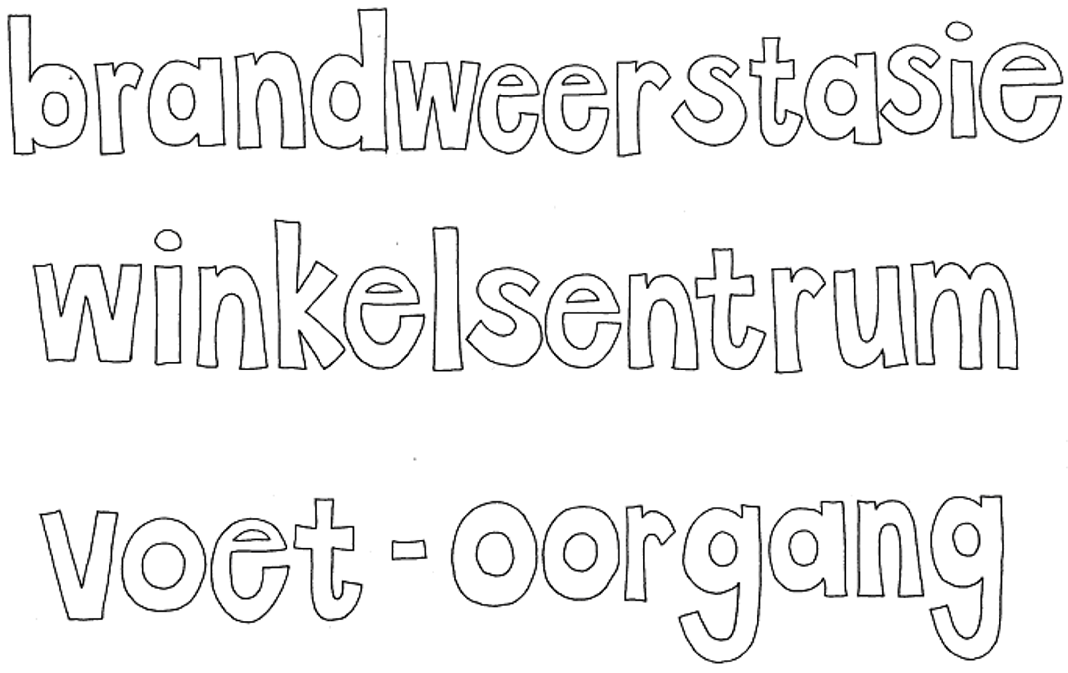 brandweerstasie
winkelsentrum
voet-oorgang